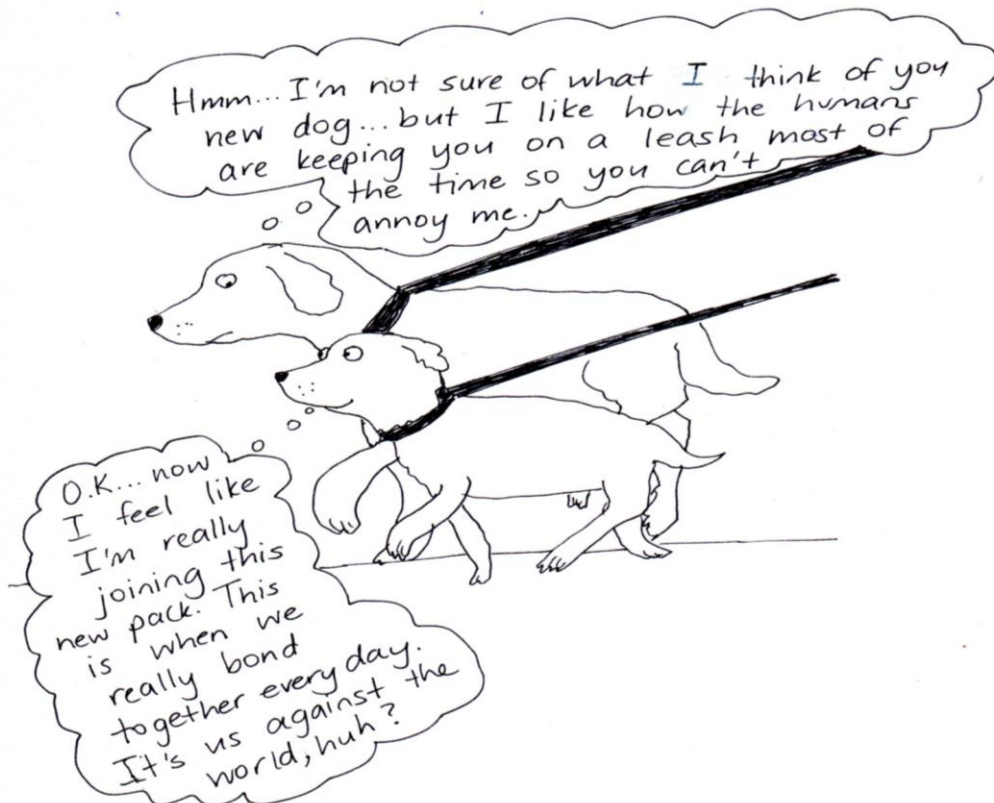 Hmm... I'm not sure of what I think of you
new dog... but I like how the humans
are keeping you on a leash most of
the time so you can't
annoy me.
O.K... now
I feel like
I'm really
joining this
new pack. This
is when we
really bond
together every day.
It's us against the
world, huh?